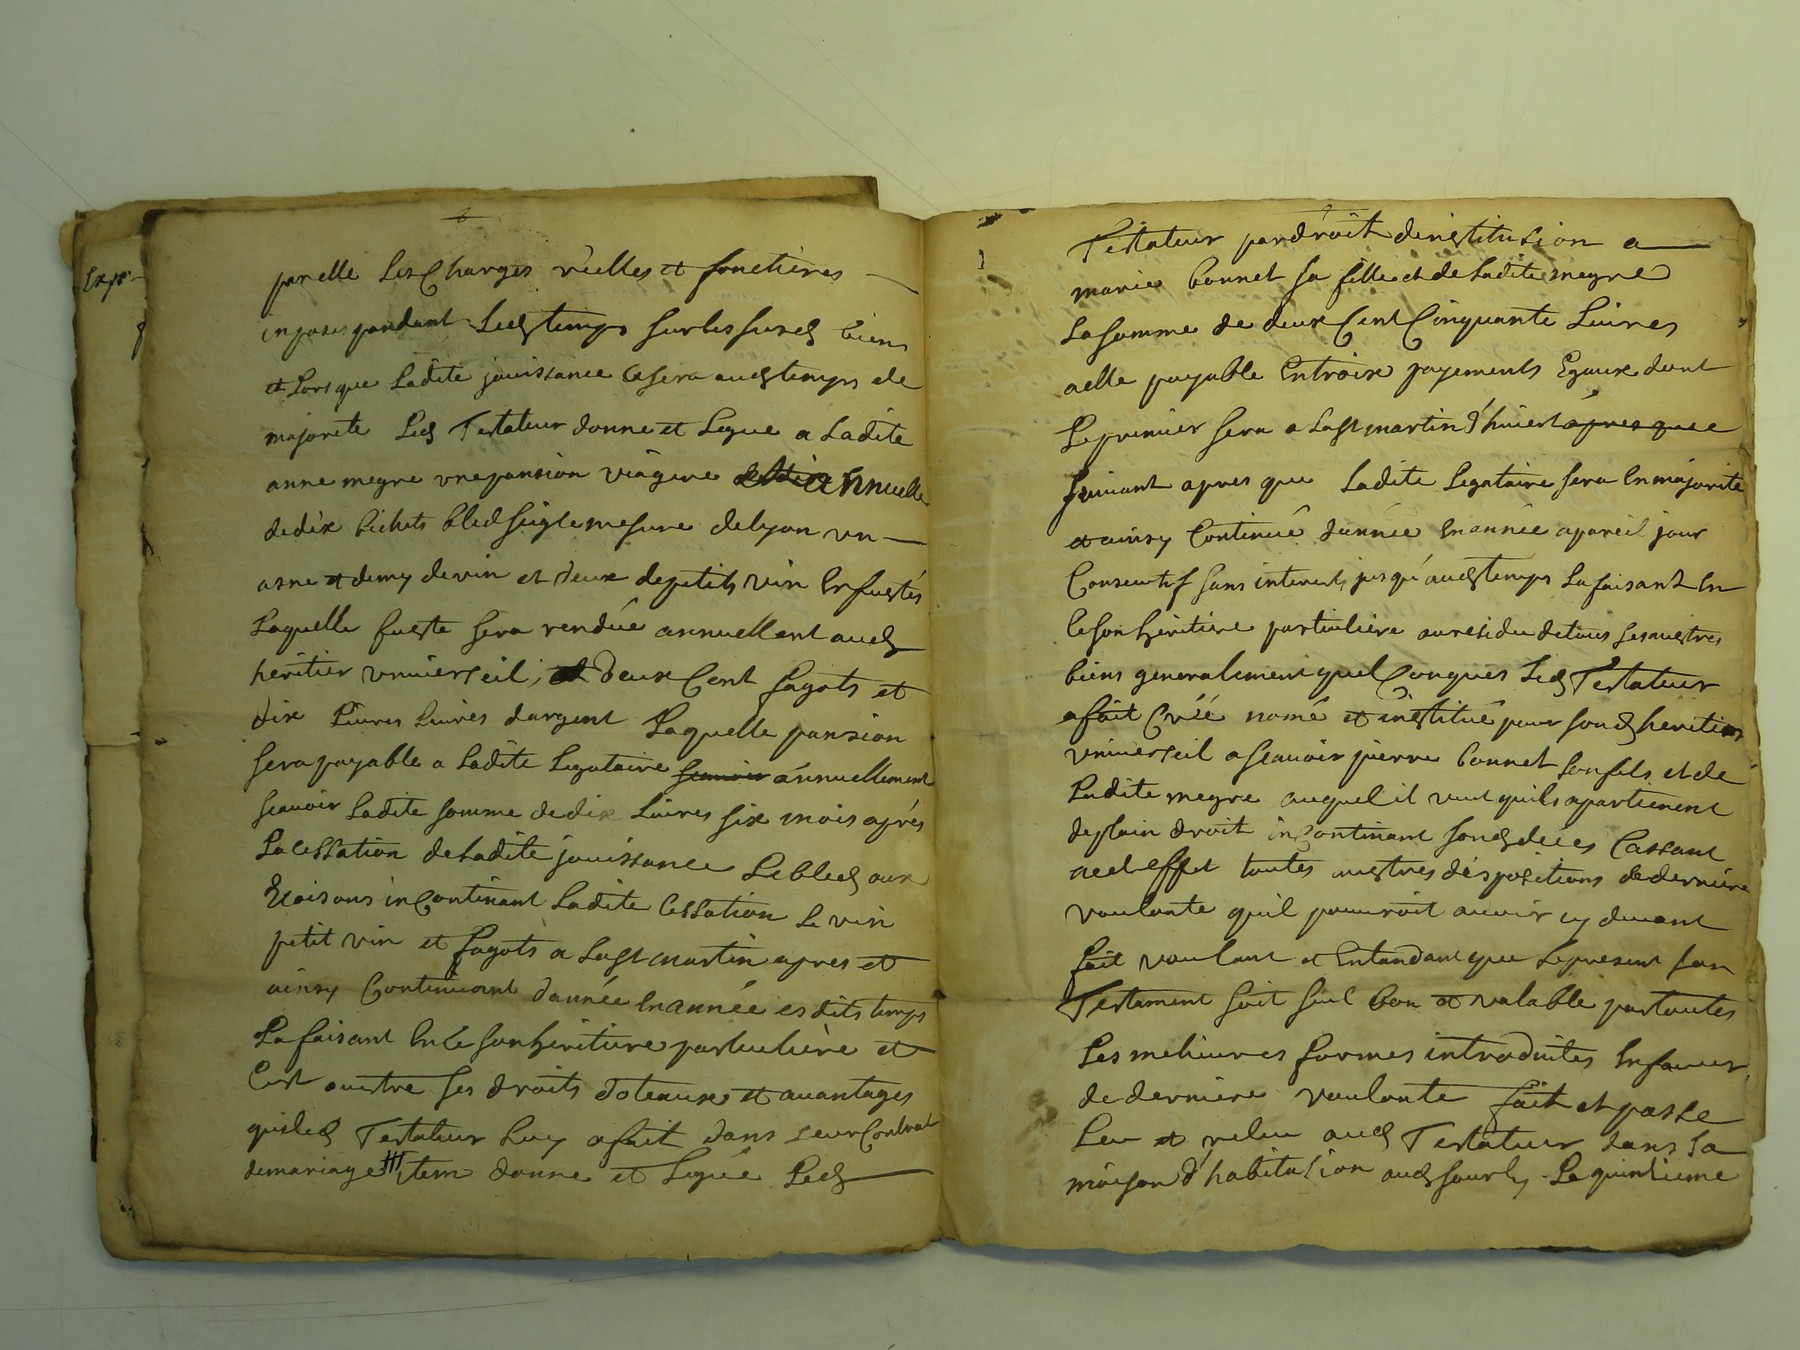 Expe
par elle Les Charges réelles et fonctieres
inposes pandant Led temps sur les susd biens
et Lors que Ladite jouissance Cesera aud temps de
majorite Led Testateur donne et Legue a Ladite
anne megre une pansion viagere annuelle
de dix bichets bled seigle mesure de Lyon un
asne et demy de vin et deux de petit vin En fustés
Laquelle fuste sera rendüe annuellent aud
heritier universeil, et deux Cent fagots et
dix Livres Livres dargent Laquelle pansion
sera payable a Ladite Legataire scauoir annuellement
scauoir Ladite somme de dix Livres six mois aprés
La cessation de Ladite jouissance Le bled aux
moisons inContinant Ladite Cessation Le vin
petit vin et fagots a La St martin apres et
ainsy Continuant dannée En année es dits temps
La faisant En Ce son heritiere particuliere et
C'est outre ses droits doteaux et auantages
que led Testateur Luy a fait dans Leur Contrat
de mariage Item donne et Legue Led
Testateur par droit dinstitution a
marie bonnet sa fille et de Ladite megre
La somme de deux Cent Cinquante Livres
a elle payable En troix payements Egaux dont
Le premier sera a La St martin d'hiuert apres que
suiuant apres que Ladite Legataire sera En majorite
et ainsy Continué dannée En année a pareil jour
Consecutif sans interest jusqu'aud temps La faisant En
Ce son héritiere particuliere au residu de tous ses austres
biens generalement quelConques Led Testateur
a fait Créé nomé et institué pour son d heritier
universeil a scauoir pierre bonnet son fils et de
Ladite megre auquel il veut quils apartienent
de plain droit inContinant son d deces Cassant
a cet effet toutes austres dispositions de derniere
voulonte quil pouuroit auoir cy deuant
fait voulant et Entandant que Le present son
Testament soit seul bon et valable par toutes
Les melieures formes introduites En faueur
de derniere voulonte fait et passe
Leu et releu aud Testateur dans sa
maison d'habitation aud Sourcy Le quinzieme